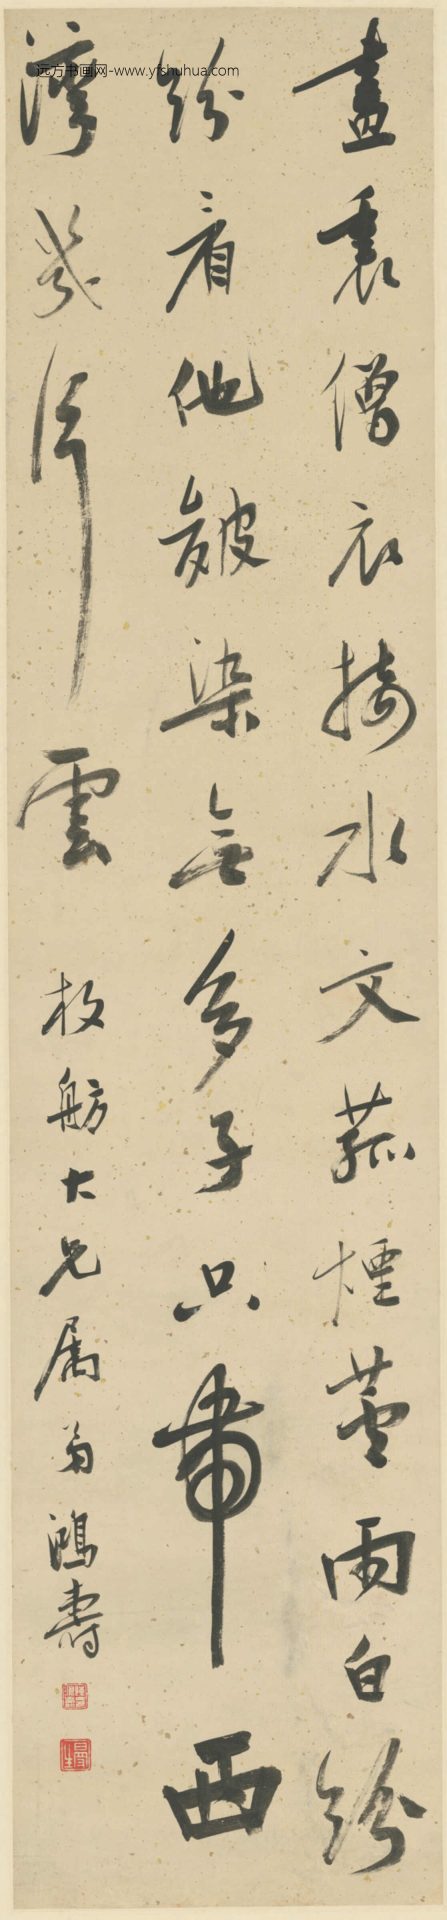 远方书画网-www.yfshuhua.com
畫裏僧衣接水文菰煙蘆雨白紛
紛看他皴染無多子只帶西
灣幾片雲
枚舫大兄属弟鴻壽
曼生